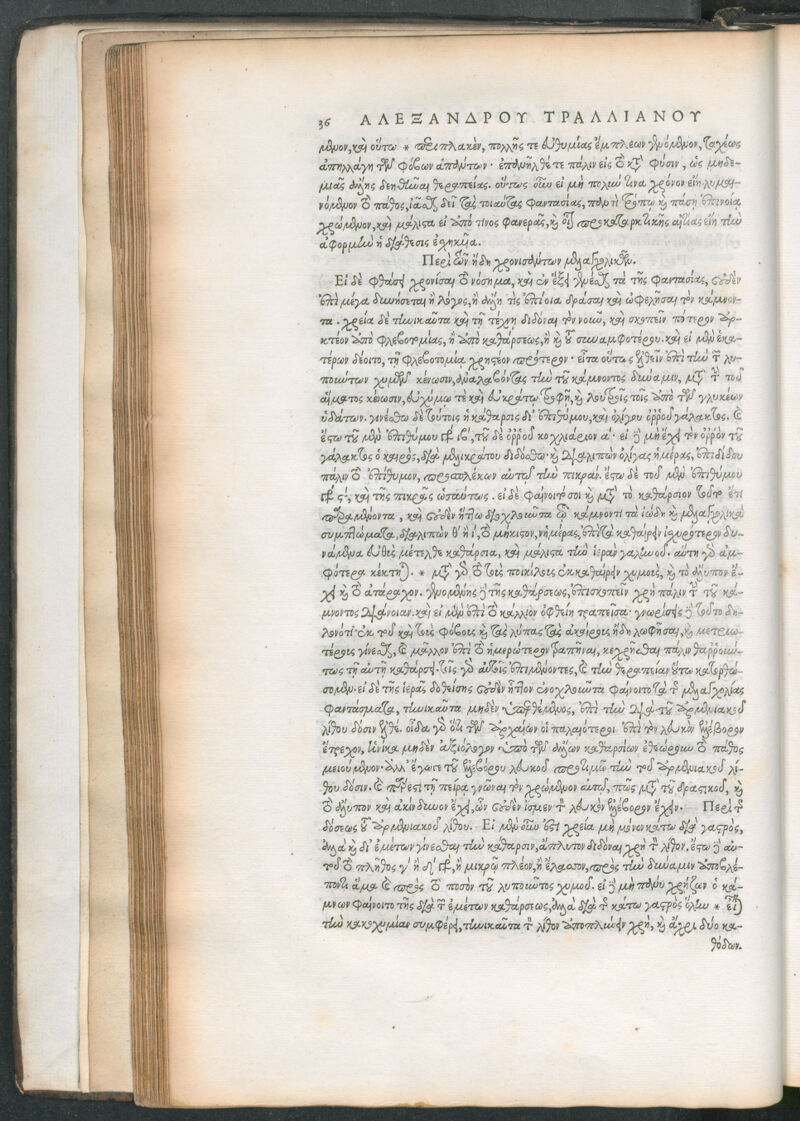 36 ΑΛΕΞΑΝΔΡΟΥ ΤΡΑΛΛΙΑΝΟΥ
μενον, καὶ οὕτω * περιπλακὲν, πολλῆς τε εὐθυμίας ἔμπλεων γενόμενον, ταχέως
ἀπηλλάγη τῶν φόβων ἁπάντων· ἐπανῆλθέ τε πάλιν εἰς τὸ κατὰ φύσιν, ὡς μηδε-
μιᾶς ἄλλης δεηθῆναι θεραπείας. οὕτως οὖν εἰ μὴ πολὺν τινα χρόνον εἴη λυμαι-
νόμενον τὸ πάθος, ἰᾶσθαι δεῖ τὰς τοιαύτας φαντασίας, παντὶ τρόπῳ καὶ πάσῃ ἐπινοίᾳ
χρώμενον, καὶ μάλιστα εἰ ἀπό τινος φανερᾶς, καὶ οἷον προκαταρκτικῆς αἰτίας εἴη τὴν
ἀφορμὴν ἡ διάθεσις ἐχηκυῖα.
Περὶ τῶν ἤδη χρονισάντων μελαγχολικῶν.
Εἰ δὲ φθάσῃ χρονίσαι τὸ νόσημα, καὶ ἐν ἕξει γενέσθαι τὰ τῆς φαντασίας, οὐδὲν
ἔτι μέγα δυνήσεται ἢ λόγος, ἢ ἄλλη τις ἐπίνοια δράσαι καὶ ὠφελῆσαι τὸν κάμνον-
τα. χρεία δὲ τηνικαῦτα καὶ τῇ τέχνῃ διδόναι τὸν νοῦν, καὶ σκοπεῖν πότερον ἀρ-
κτέον ἀπὸ φλεβοτομίας, ἢ ἀπὸ καθάρσεως, ἢ καὶ τοῦ συναμφοτέρου. καὶ εἰ μὲν ἑκα-
τέρων δέοιτο, τῇ φλεβοτομίᾳ χρηστέον πρότερον· εἶτα οὕτως ἐλθεῖν ἐπὶ τὴν τῶν λυ-
ποιώτων χυμῶν κένωσιν, ἀναλαβόντας τὴν τοῦ κάμνοντος δύναμιν, μετὰ τὴν τοῦ
αἵματος κένωσιν, εὐχύμῳ τε καὶ εὐκράτῳ τροφῇ, καὶ λουτροῖς τοῖς ἀπὸ τῶν γλυκέων
ὑδάτων. γινέσθω δὲ τούτοις ἡ κάθαρσις δι' ἐπιθύμου, καὶ ὀλίγου ὀρροῦ γάλακτος. καὶ
ἔστω τοῦ μὲν ἐπιθύμου τοῦ δὲ ὀρροῦ κοχλιάριον α΄. εἰ δὲ μὴ ἔχει τὸν ὀρρὸν τοῦ
γάλακτος ὁ καιρὸς, διὰ μελικράτου διδόσθω· καὶ διαλιπὼν ὀλίγας ἡμέρας, ἐπιδίδου
πάλιν τὸ ἐπίθυμον, προσπλέκων αὐτῷ τὴν πικράν. ἔστω δὲ τοῦ μὲν ἐπιθύμου
καὶ τῆς πικρᾶς ὡσαύτως. εἰ δὲ φαίνοιτό σοι καὶ μετὰ τὸ καθάρσιον τοῦτο ἔτι
παραμένοντα, καὶ οὐδὲν ἧττον διοχλοῦντα τῷ κάμνοντι τὰ εἴδη καὶ μελαγχολικὰ
συμπτώματα, διαλιπὼν θ΄ ἢ ι΄, τὸ μήκιστον, ἡμέρας, ἐπὶ τὰ καθαίρειν ἰσχυρότερον δυ-
νάμενα εὐθὺς μέτελθε καθάρσια, καὶ μάλιστα τὴν ἱερὰν γαληνοῦ. αὕτη γὰρ ἀμ-
φότερα κέκτηται. * μετὰ γὰρ τὸ τοὺς ποικίλους ἐκκαθαίρειν χυμοὺς, καὶ τὸ ἄλυπον ἔ-
χει καὶ τὸ ἀτάραχον. γενομένης δὲ τῆς καθάρσεως, ἐπισκοπεῖν χρὴ πάλιν τὴν τοῦ κά-
μνοντος διάνοιαν. καὶ εἰ μὲν ἐπὶ τὸ κάλλιον ὀφθείη τραπεῖσα· γνωρίσεις δὲ τοῦτο δη-
λονότι ἐκ τοῦ καὶ τοὺς φόβους καὶ τὰς λύπας τὰς ἀκαίρους ἤδη λωφῆσαι, καὶ μετριω-
τέρους γίνεσθαι, καὶ μᾶλλον ἐπὶ τὸ ἡμερώτερον τραπῆναι, κεχρῆσθαι πάλιν θαρροῦν-
τως τῇ αὐτῇ καθάρσει. τοῖς γὰρ αὐτοῖς ἐπιμένοντες, καὶ τὴν θεραπείαν οὕτω κατορθώ-
σομεν. εἰ δὲ τῆς ἱερᾶς δοθείσης οὐδὲν ἧττον ἐνοχλοῦντα φαίνοιτο τὰ τῆς μελαγχολίας
φαντάσματα, τηνικαῦτα μηδὲν ὑπερθέμενος, ἐπὶ τὴν διὰ τοῦ ἀρμενιακοῦ
λίθου δόσιν ἐλθέ. οἶδα γὰρ ὅτι τῶν ἀρχαίων οἱ παλαιότεροι ἐπὶ τὸν λευκὸν ἐλλέβορον
ἔτρεχον, ἡνίκα μηδὲν ἀξιόλογον ὑπὸ τῶν ἄλλων καθαρσίων ἐθεώρουν τὸ πάθος
μειούμενον· ἀλλ' ἔγωγε τοῦ ἐλλεβόρου λευκοῦ προτιμῶ τὴν τοῦ ἀρμενιακοῦ λί-
θου δόσιν. καὶ πάρεστι τῇ πείρᾳ γνῶναι τὸν χρώμενον αὐτῷ, πῶς μετὰ τοῦ δραστικοῦ, καὶ
τὸ ἄλυπον καὶ ἀκίνδυνον ἔχει, ὧν οὐδὲν ἴσμεν τὸν λευκὸν ἐλλέβορον ἔχειν. Περὶ τῆς
δόσεως τοῦ ἀρμενιακοῦ λίθου. Εἰ μὲν οὖν ἔτι χρεία μὴ μόνον κάτω διὰ γαστρὸς,
ἀλλὰ καὶ δι' ἐμέτων γίνεσθαι τὴν κάθαρσιν, ἄπλυτον διδόναι χρὴ τὸν λίθον. ἔστω δὲ αὐ-
τοῦ τὸ πλῆθος ἢ μικρῷ πλέον, ἢ ἔλασσον, πρὸς τὴν δύναμιν ἀποβλέ-
ποντι ἅμα καὶ πρὸς τὸ ποσὸν τοῦ λυποῦντος χυμοῦ. εἰ δὲ μὴ πάνυ χρῄζων ὁ κά-
μνων φαίνοιτο τῆς διὰ τῶν ἐμέτων καθάρσεως, ἀλλὰ διὰ τῆς κάτω γαστρὸς ὅλην *
τὴν κακοχυμίαν συμφέρει, τηνικαῦτα τὸν λίθον ἀποπλύνειν χρὴ, καὶ ἄχρι δύο κα-
θόδων.